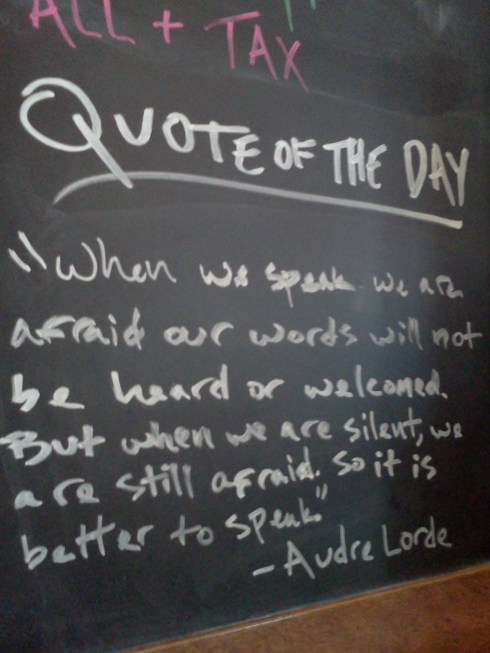 ALL + TAX
QUOTE OF THE DAY
"When we speak we are
afraid our words will not
be heard or welcomed.
But when we are silent, we
are still afraid. So it is
better to speak."
- Audre Lorde